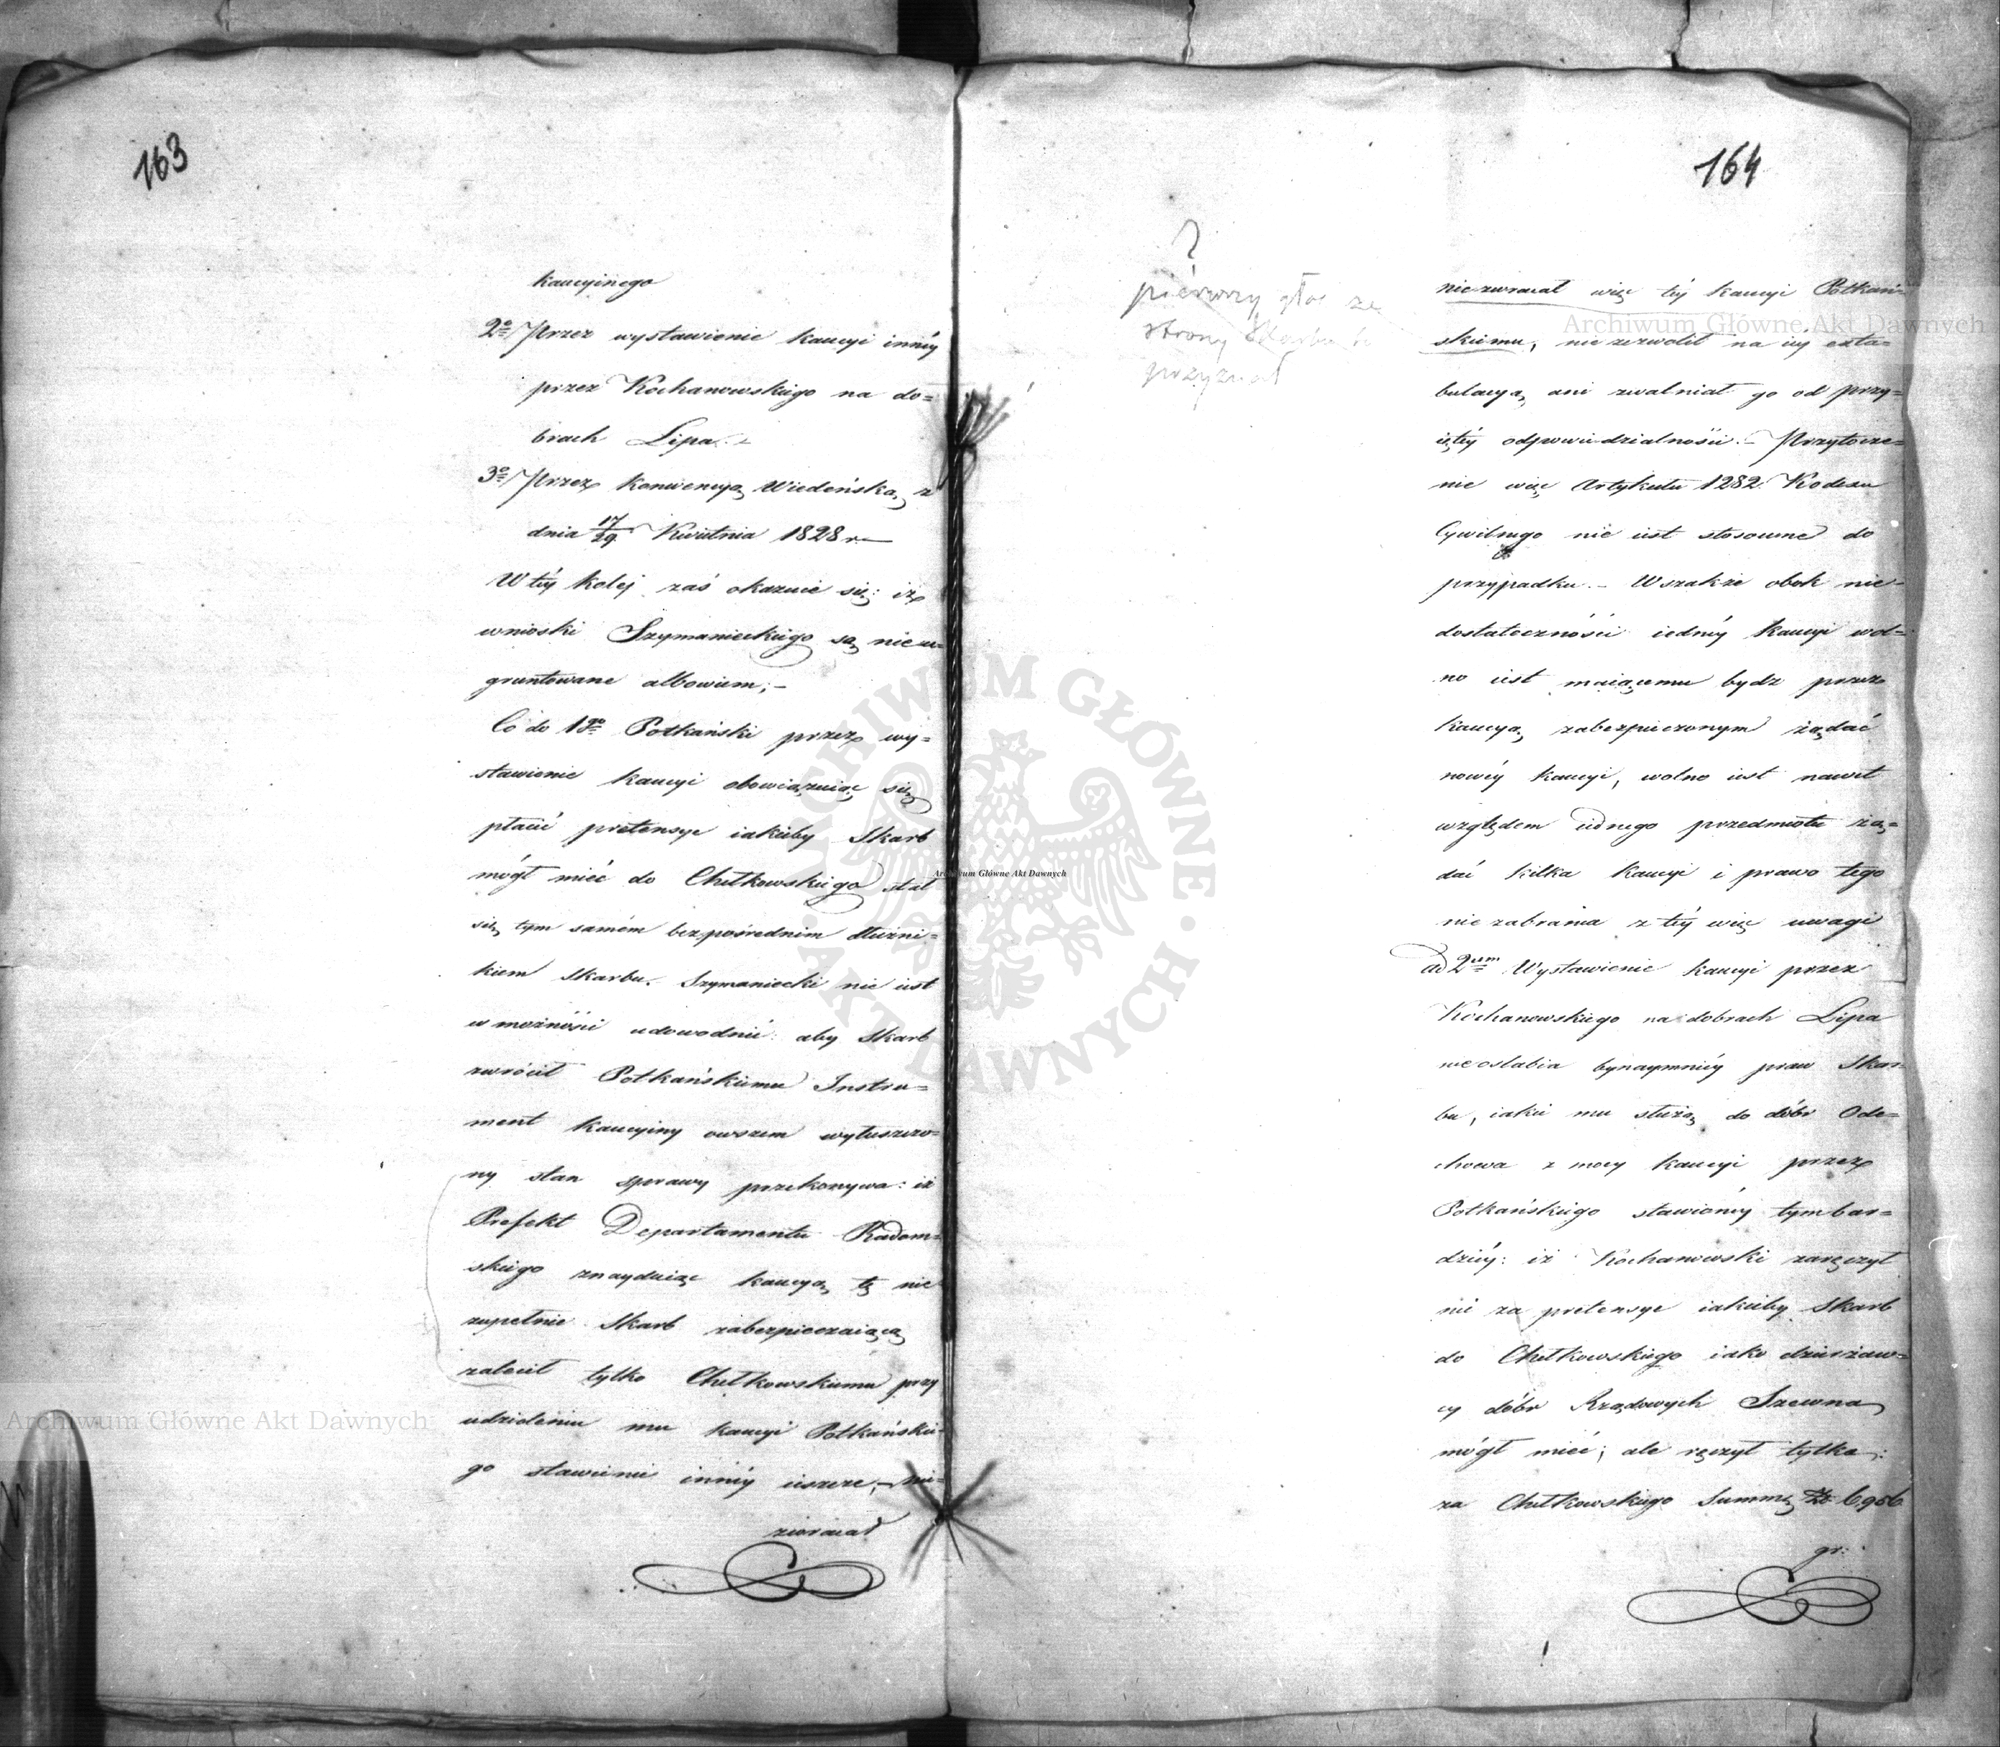 163
kaucyinego
2o/ Przez wystawienie kaucyi innéy
przez Kochanowskiego na do=
brach Lipa.
3o/ Przez Konwencyą Wiedeńską z
dnia 17/29 Kwietnia 1828 r.
W téy kolej zaś okazuie się: iż
wnioski Szymanieckiego są nieu=
gruntowane albowiem;
Co do 1go Potkański przez wy=
stawienie kaucyi obowiązuiąc się
płacić pretensye iakieby Skarb
mógł mieć do Chełkowskiego stał
się tym samém bezpośrednim dłużni=
kiem Skarbu. Szymaniecki nie iest
w możności udowodnić: aby Skarb
zwrócił Potkańskiemu Instru=
ment kaucyiny owszem wyłuszczo=
ny stan sprawy przekonywa: iż
Prefekt Departamentu Radom=
skiego znayduiąc kaucyą tę nie
zupełnie Skarb zabezpieczaiącą
zalecił tylko Chełkowskiemu przy
udzieleniu mu kaucyi Potkańskie=
go stawienie innéy ieszcze, nie=
zwracał
164
?
pierwszy głos ze
strony Skarbu
przyznał
nie zwracał więc téy kaucyi Potkań=
skiemu, nie zezwolił na iéy exta=
bulacyą, ani zwalniał go od przy=
iętéy odpowiedzialności. Przytocze=
nie więc Artykułu 1282 Kodexu
Cywilnego nie iest stosowne do
przypadku. Wszakże obok nie=
dostateczności iednéy kaucyi wol=
no iest maiącemu bydź przez
kaucyą zabezpieczonym żądać
nowéy kaucyi, wolno iest nawet
względem iednego przedmiotu żą=
dać kilka kaucyi i prawo tego
nie zabrania z téy więc uwagi
ad 2um Wystawienie kaucyi przez
Kochanowskiego na dobrach Lipa
nie osłabia bynaymniéy praw Skar=
bu, iakie mu służą do dóbr Ode=
chowa z mocy kaucyi przez
Potkańskiego stawionéy tymbar=
dziéy: iż Kochanowski zaręczył
nie za pretensye iakieby Skarb
do Chełkowskiego iako dzierżaw=
cy dóbr Rządowych Szewna
mógł mieć; ale ręczył tylko:
za Chełkowskiego Summę Złp 6906
gr: